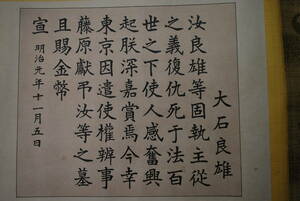 大石良雄
汝良雄等固執主從
之義復仇死于法百
世之下使人感奮興
起朕深嘉賞焉今幸
東京因遣使權辨事
藤原獻弔汝等之墓
且賜金幣
宣 明治元年十一月五日